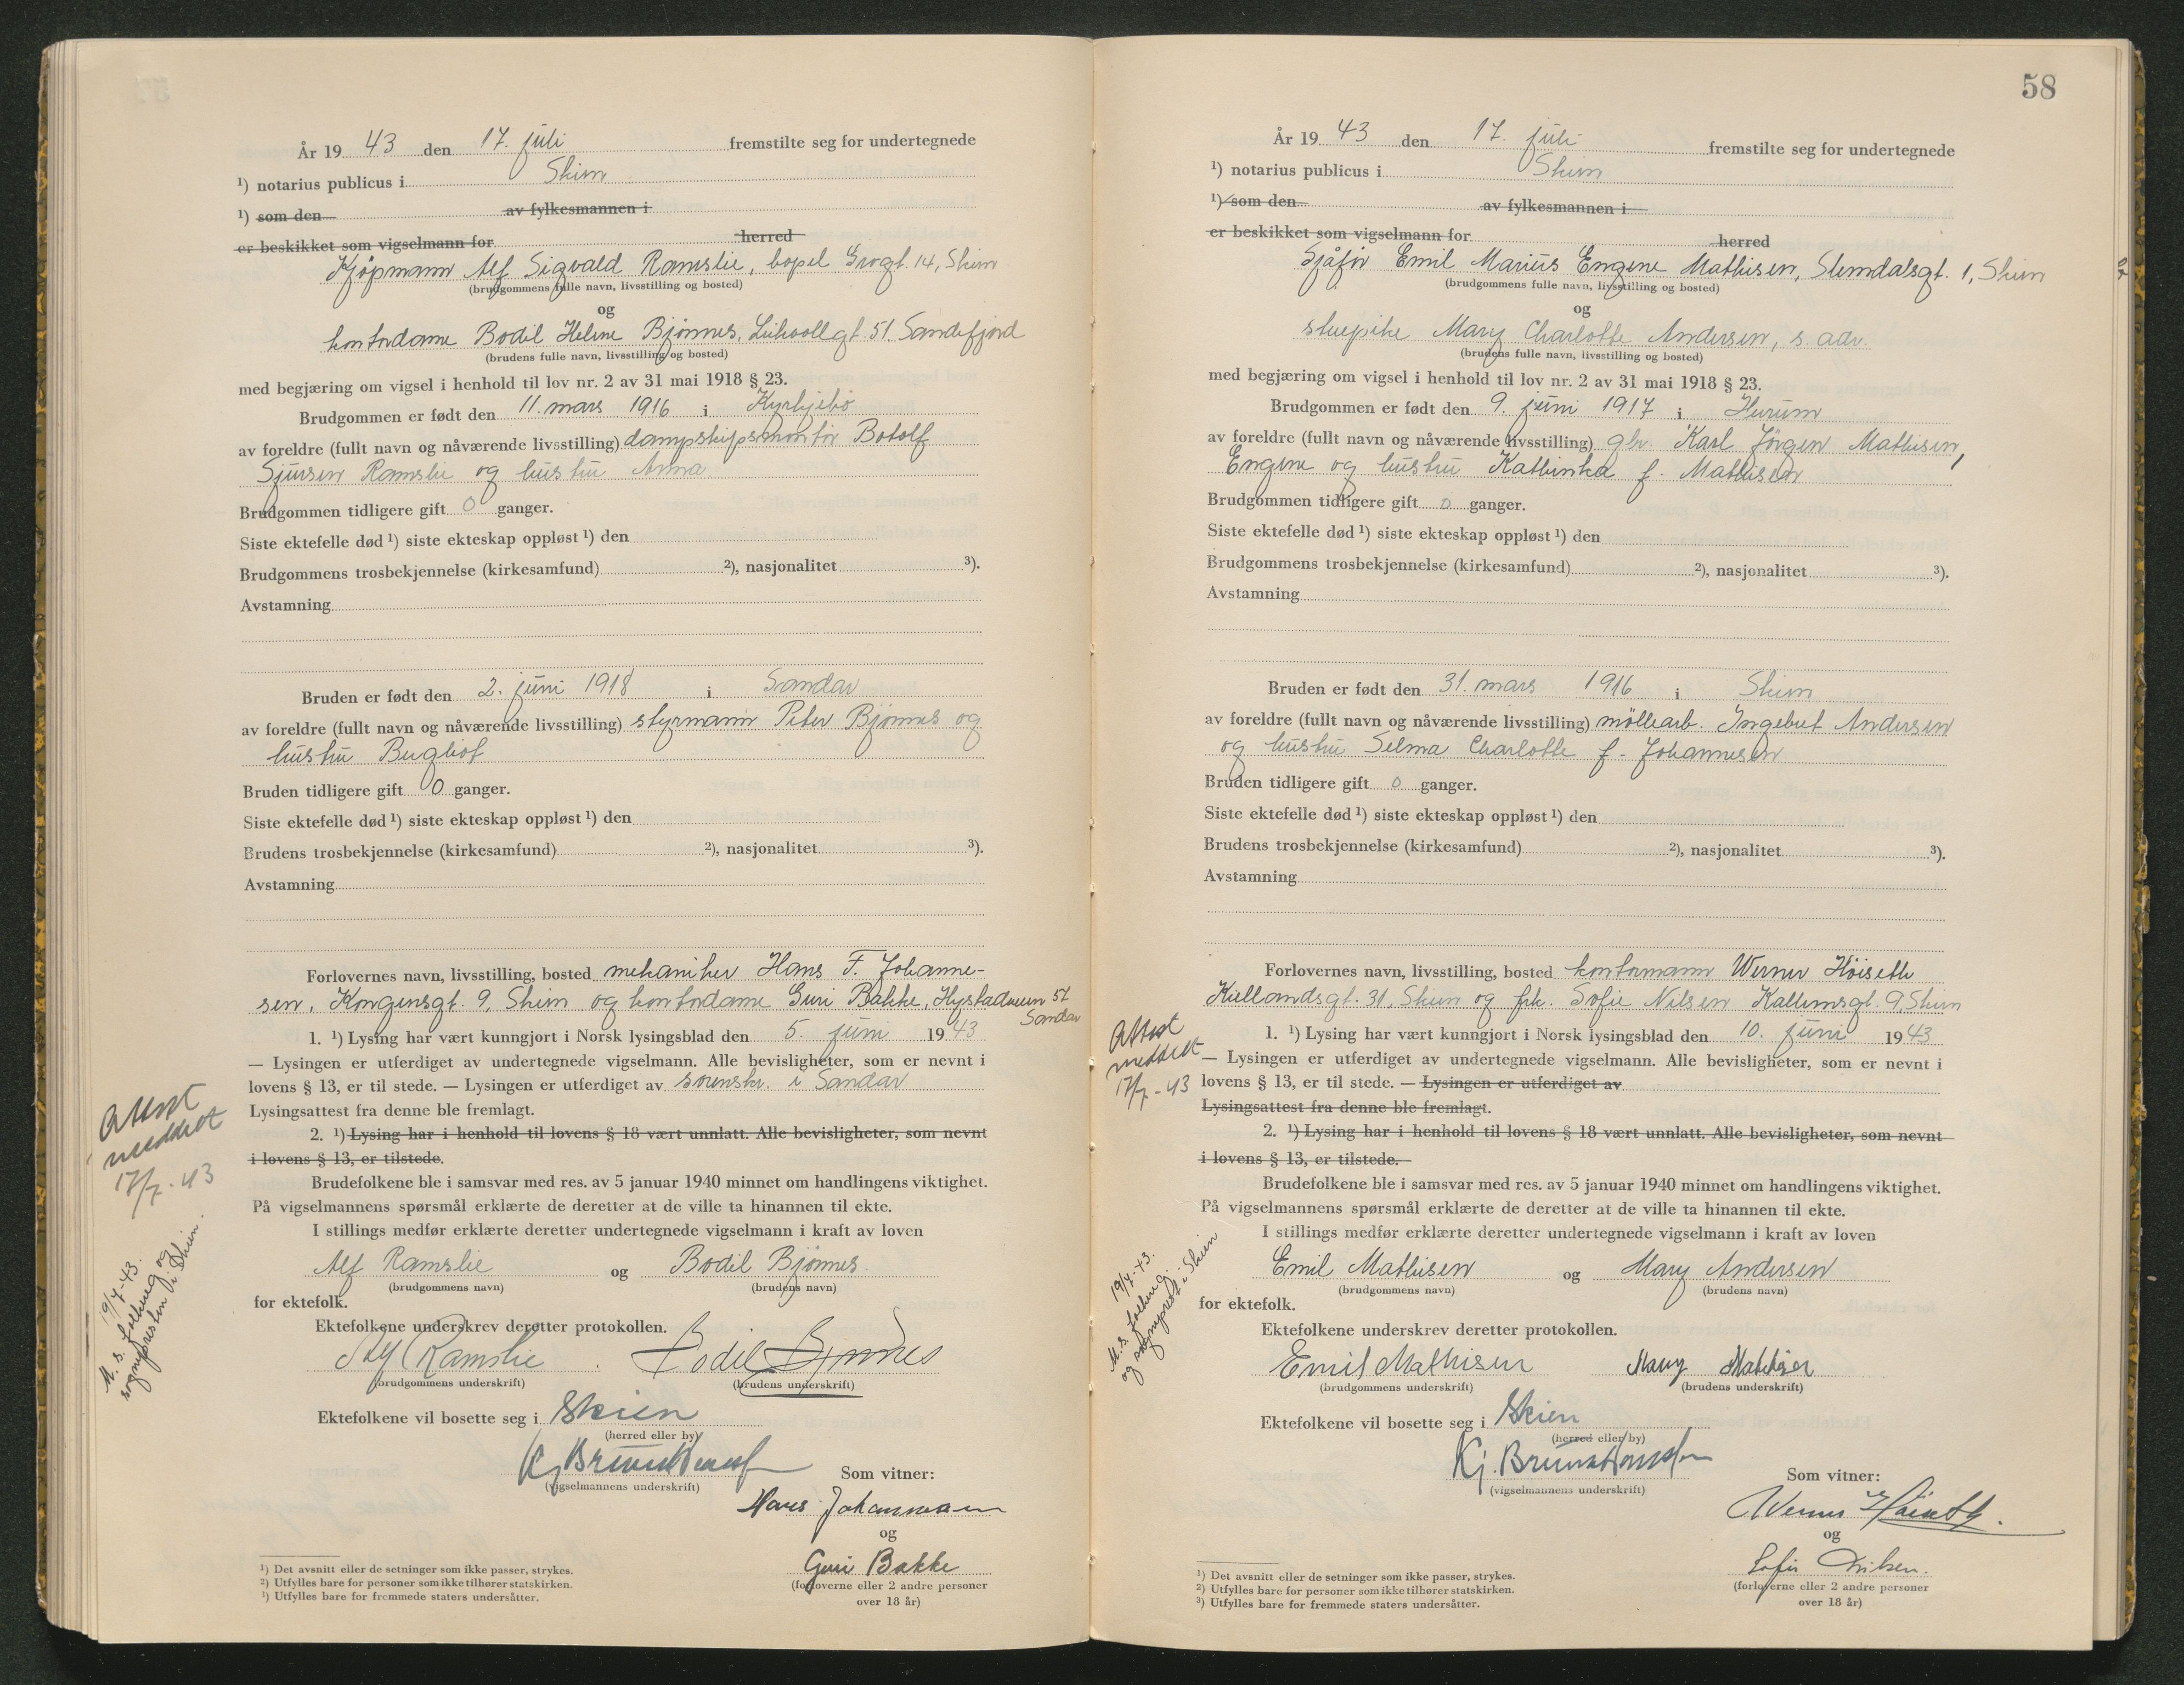 År 19 43 den 17. juli fremstilte seg for undertegnede
¹) notarius publicus i Skien
¹) som den av fylkesmannen i
er beskikket som vigselmann for herred
Kjøpmann Alf Sigvald Ramslie, bopel 14, Skien
(brudgommens fulle navn, livsstilling og bosted)
og
kontordame Bodil Helene Bjønnes, 51, Sandefjord
(brudens fulle navn, livsstilling og bosted)
med begjæring om vigsel i henhold til lov nr. 2 av 31 mai 1918 § 23.
Brudgommen er født den 11. mars 1916 i Kyrkjebø
av foreldre (fullt navn og nåværende livsstilling) dampskipskontor Botolf
Sjursen Ramslie og hustru Anna.
Brudgommen tidligere gift 0 ganger.
Siste ektefelle død ¹) siste ekteskap oppløst ¹) den
Brudgommens trosbekjennelse (kirkesamfund) ²), nasjonalitet ³).
Avstamning
Bruden er født den 2. juni 1918 i Sandar
av foreldre (fullt navn og nåværende livsstilling) styrmann Peter Bjønnes og
hustru Bergliot
Bruden tidligere gift 0 ganger.
Siste ektefelle død ¹) siste ekteskap oppløst ¹) den
Brudens trosbekjennelse (kirkesamfund) ²), nasjonalitet ³).
Avstamning
Forlovernes navn, livsstilling, bosted mekaniker Hans F. Johanne-
sen, Kongensgt. 9, Skien og kontordame Guri Bakke, Hystadveien 57
Sandar
1. ¹) Lysing har vært kunngjort i Norsk lysingsblad den 5. juni 19 43
— Lysingen er utferdiget av undertegnede vigselmann. Alle bevisligheter, som er nevnt i
lovens § 13, er til stede. — Lysingen er utferdiget av sorenskr. i Sandar
Lysingsattest fra denne ble fremlagt.
2. ¹) Lysing har i henhold til lovens § 18 vært unnlatt. Alle bevisligheter, som nevnt
i lovens § 13, er tilstede.
Brudefolkene ble i samsvar med res. av 5 januar 1940 minnet om handlingens viktighet.
På vigselmannens spørsmål erklærte de deretter at de ville ta hinannen til ekte.
I stillings medfør erklærte deretter undertegnede vigselmann i kraft av loven
Alf Ramslie og Bodil Bjønnes
(brudgommens navn) (brudens navn)
for ektefolk.
Ektefolkene underskrev deretter protokollen.
Alf Ramslie Bodil Bjønnes
(brudgommens underskrift) (brudens underskrift)
Ektefolkene vil bosette seg i Skien
(herred eller by)
(vigselmannens underskrift)
Som vitner:
Hans Johannesen
og
Guri Bakke
(forloverne eller 2 andre personer
over 18 år)
¹) Det avsnitt eller de setninger som ikke passer, strykes.
²) Utfylles bare for personer som ikke tilhører statskirken.
¹) Utfylles bare for fremmede staters undersåtter.
Attest
meddelt
17/7-43
19/7-43.
M. s. og
sognepresten i Skien.
58
År 19 43 den 17. juli fremstilte seg for undertegnede
¹) notarius publicus i Skien
¹) som den av fylkesmannen i
er beskikket som vigselmann for herred
Sjåfør Emil Marius Engene Mathisen, Slemdalsgt. 1, Skien
(brudgommens fulle navn, livsstilling og bosted)
og
stuepike Mary Charlotte Andersen, s. adr.
(brudens fulle navn, livsstilling og bosted)
med begjæring om vigsel i henhold til lov nr. 2 av 31 mai 1918 § 23.
Brudgommen er født den 9. juni 1917 i Hurum
av foreldre (fullt navn og nåværende livsstilling) Karl Jörgen Mathisen,
Engene og hustru Kathinka f. Mathisen
Brudgommen tidligere gift 0 ganger.
Siste ektefelle død ¹) siste ekteskap oppløst ¹) den
Brudgommens trosbekjennelse (kirkesamfund) ²), nasjonalitet ³).
Avstamning
Bruden er født den 31. mars 1916 i Skien
av foreldre (fullt navn og nåværende livsstilling) möllearb. Ingebret Andersen
og hustru Selma Charlotte f. Johannesen
Bruden tidligere gift 0 ganger.
Siste ektefelle død ¹) siste ekteskap oppløst ¹) den
Brudens trosbekjennelse (kirkesamfund) ²), nasjonalitet ³).
Avstamning
Forlovernes navn, livsstilling, bosted kontormann Werner Höiseth
Kiellandsgt. 31, Skien og frk. Sofie Nilsen 9, Skien
1. ¹) Lysing har vært kunngjort i Norsk lysingsblad den 10. juni 19 43
— Lysingen er utferdiget av undertegnede vigselmann. Alle bevisligheter, som er nevnt i
lovens § 13, er til stede. — Lysingen er utferdiget av
Lysingsattest fra denne ble fremlagt.
2. ¹) Lysing har i henhold til lovens § 18 vært unnlatt. Alle bevisligheter, som nevnt
i lovens § 13, er tilstede.
Brudefolkene ble i samsvar med res. av 5 januar 1940 minnet om handlingens viktighet.
På vigselmannens spørsmål erklærte de deretter at de ville ta hinannen til ekte.
I stillings medfør erklærte deretter undertegnede vigselmann i kraft av loven
Emil Mathisen og Mary Andersen
(brudgommens navn) (brudens navn)
for ektefolk.
Ektefolkene underskrev deretter protokollen.
Emil Mathisen Mary Mathisen
(brudgommens underskrift) (brudens underskrift)
Ektefolkene vil bosette seg i Skien
(herred eller by)
Kj.
(vigselmannens underskrift)
Som vitner:
Werner Höiseth.
og
Sofie Nilsen.
(forloverne eller 2 andre personer
over 18 år)
¹) Det avsnitt eller de setninger som ikke passer, strykes.
²) Utfylles bare for personer som ikke tilhører statskirken.
³) Utfylles bare for fremmede staters undersåtter.
Attest
meddelt
17/7-43
19/7-43.
M. s.
og sogneprest i Skien